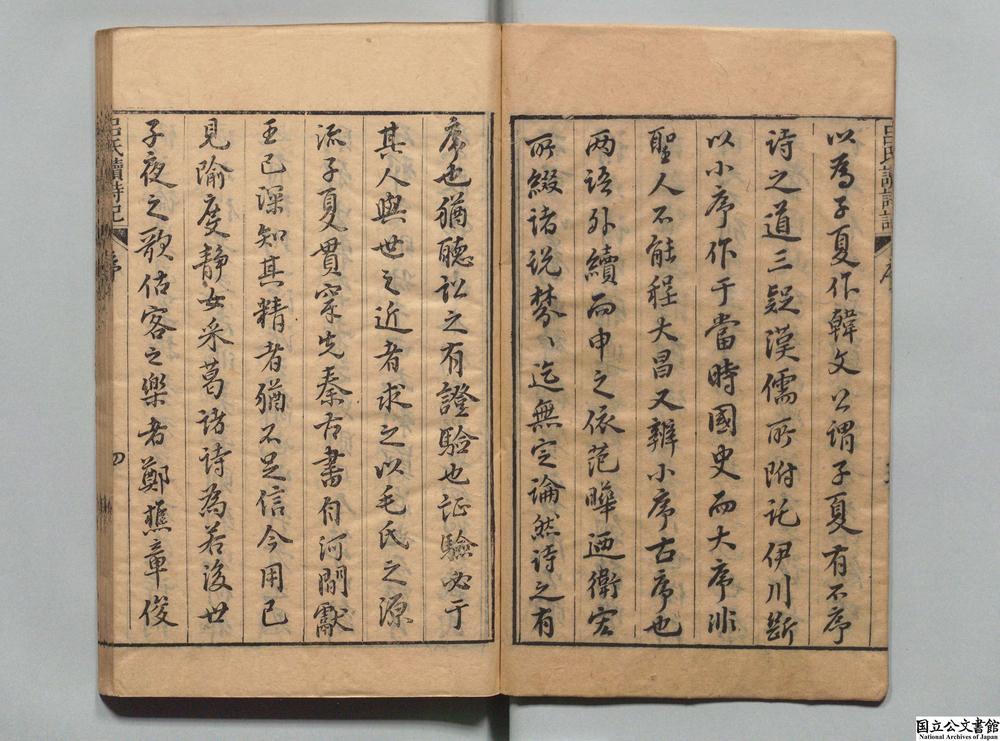 以為子夏作韓文公謂子夏有不序
詩之道三疑漢儒所附託伊川斷
以小序作于當時國史而大序非
聖人不能程大昌又辨小序古序也
两语外續而申之依范曄迺衛宏
所綴诸说棼丶迄無定論然詩之有
序也猶聽訟之有證驗也证驗必于
其人與世之近者求之以毛氏之源
流子夏貫穿先秦古書自河間獻
王已深知其精者猶不足信今用已
見隃度静女采葛诸诗為若後世
子夜之歌估客之樂者鄭樵章俊
呂氏讀詩記
序
四
国立公文書館
National Archives of Japan